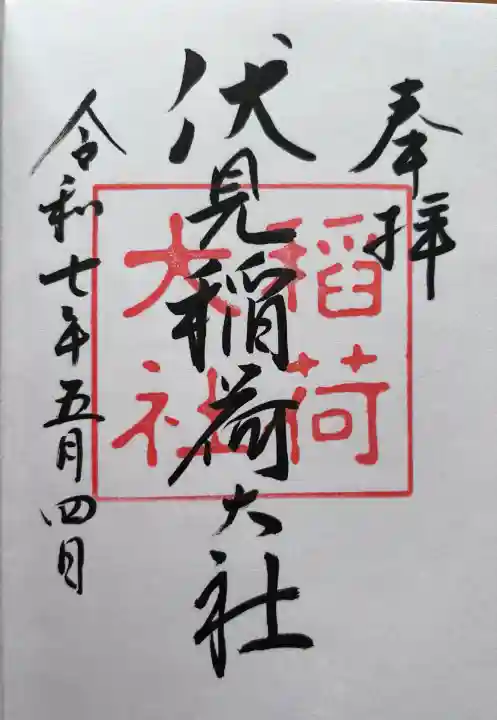 奉拝
稲荷
大社
伏見稲荷大社
令和七年五月四日